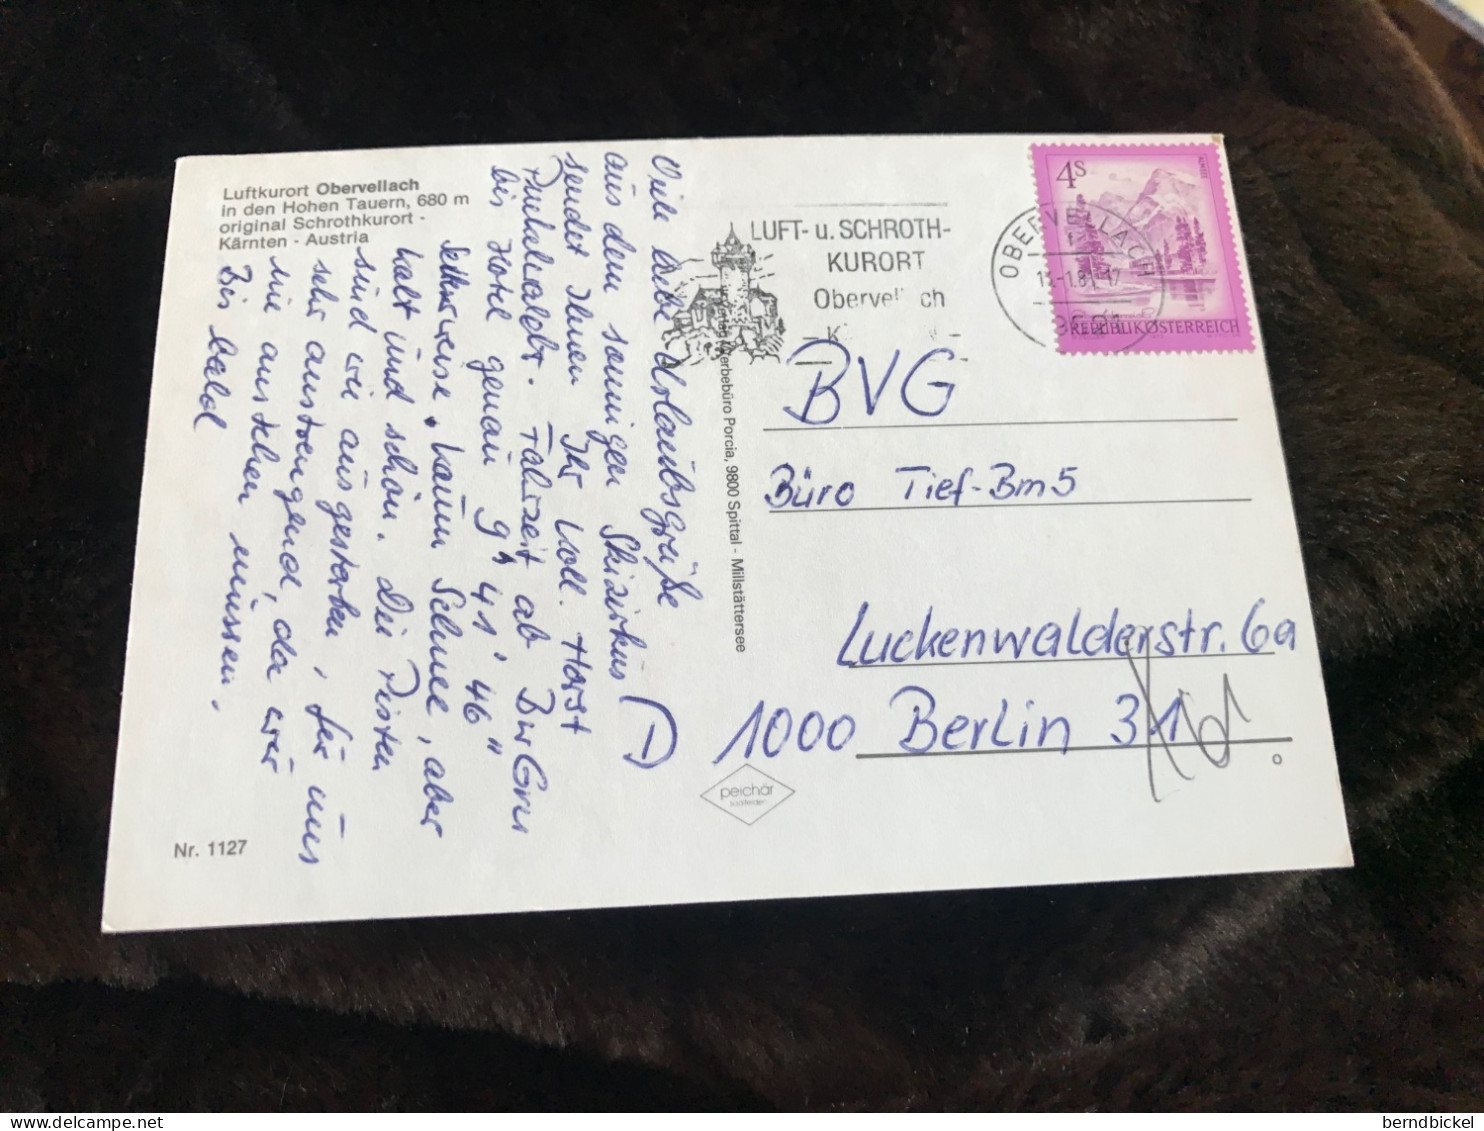 Luftkurort Obervellach
in den Hohen Tauern, 680 m
original Schrothkurort -
Kärnten - Austria
Viele liebe Urlaubsgrüße
aus dem sonnigen Skizirkus
sendet Ihnen Ihr Koll. Horst
Fahrzeit ab
bis Hotel genau 9° 41' 46"
kaum Schnee, aber
kalt und schön. Die Pisten
sind wie ausgestorben, für uns
sehr anstrengend, da wir
nie anstehen müssen.
Bis bald
Nr. 1127
Werbebüro Porcia, 9800 Spittal - Millstättersee
peichär
LUFT- u. SCHROTH-
KURORT
OBERVELLACH
4S
REPUBLIK ÖSTERREICH
BVG
Büro Tief-Bm5
Luckenwalderstr. 6a
1000 Berlin 31
berndbickel